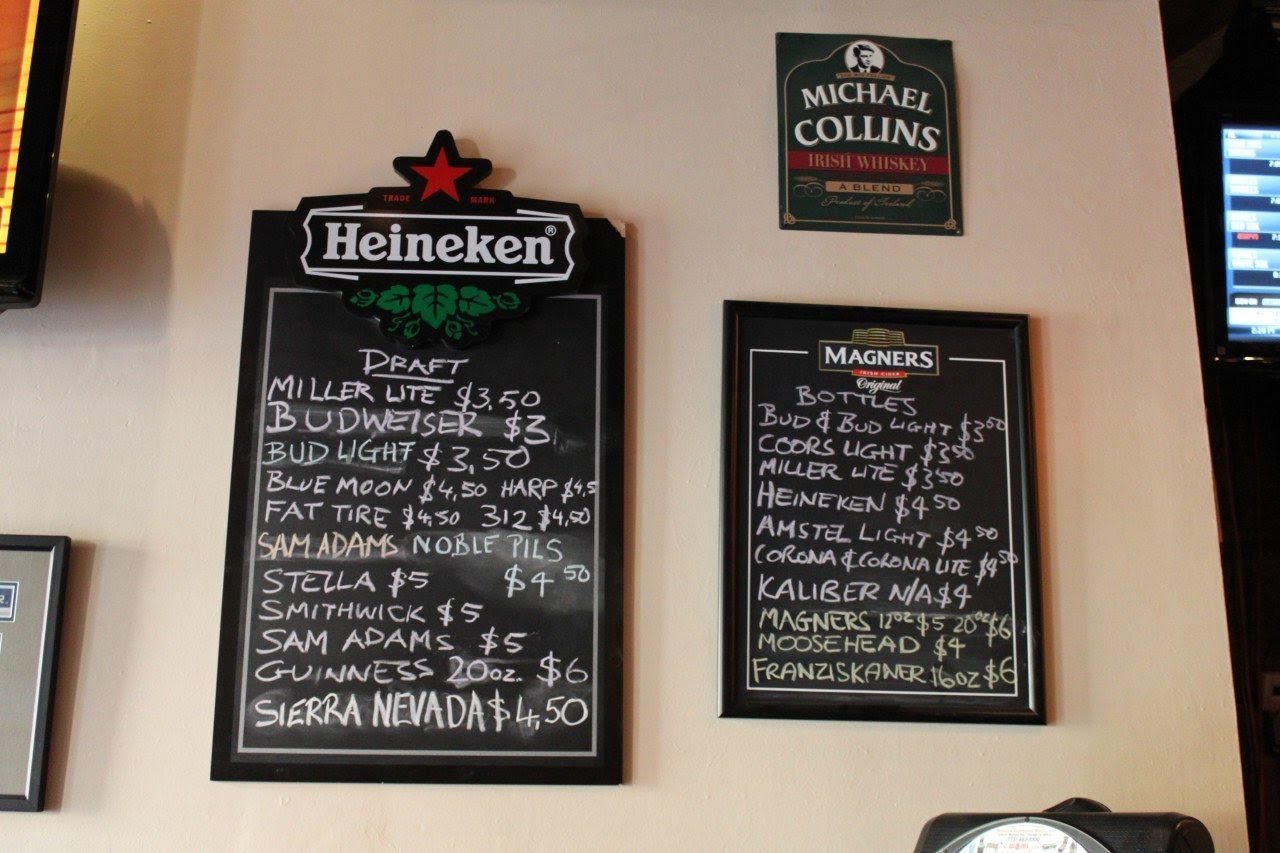 TRADE MARK
Heineken®
DRAFT
MILLER LITE $3.50
BUDWEISER $3
BUD LIGHT $3,50
BLUE MOON $4,50 HARP $4,5
FAT TIRE $4.50 312 $4,50
SAM ADAMS NOBLE PILS
STELLA $5 $4 50
SMITHWICK $5
SAM ADAMS $5
GUINNESS 20oz. $6
SIERRA NEVADA $4,50
MICHAEL
COLLINS
IRISH WHISKEY
A BLEND
Product of Ireland
MAGNERS
IRISH CIDER
Original
BOTTLES
BUD & BUD LIGHT $3 50
COORS LIGHT $3 50
MILLER LITE $3 50
HEINEKEN $4 50
AMSTEL LIGHT $4 50
CORONA & CORONA LITE $4 50
KALIBER N/A $4
MAGNERS 12oz $5 20oz $6
MOOSEHEAD $4
FRANZISKANER 16oz $6